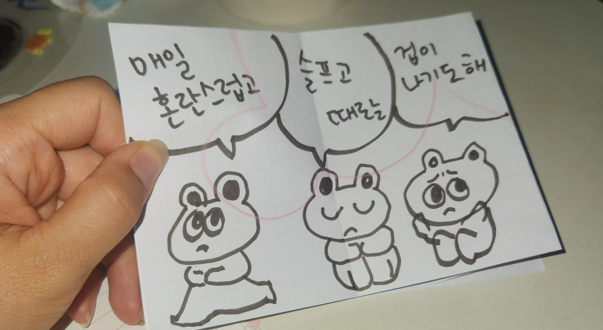 매일
혼란스럽고
슬프고
때로는
겁이
나기도해